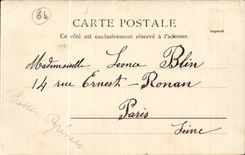 64
CARTE POSTALE
Ce côté est exclusivement réservé à l'adresse.
Mademoiselle Léonce Blin
14 rue Ernest-Renan
Paris
Seine
Basses Pyrénées